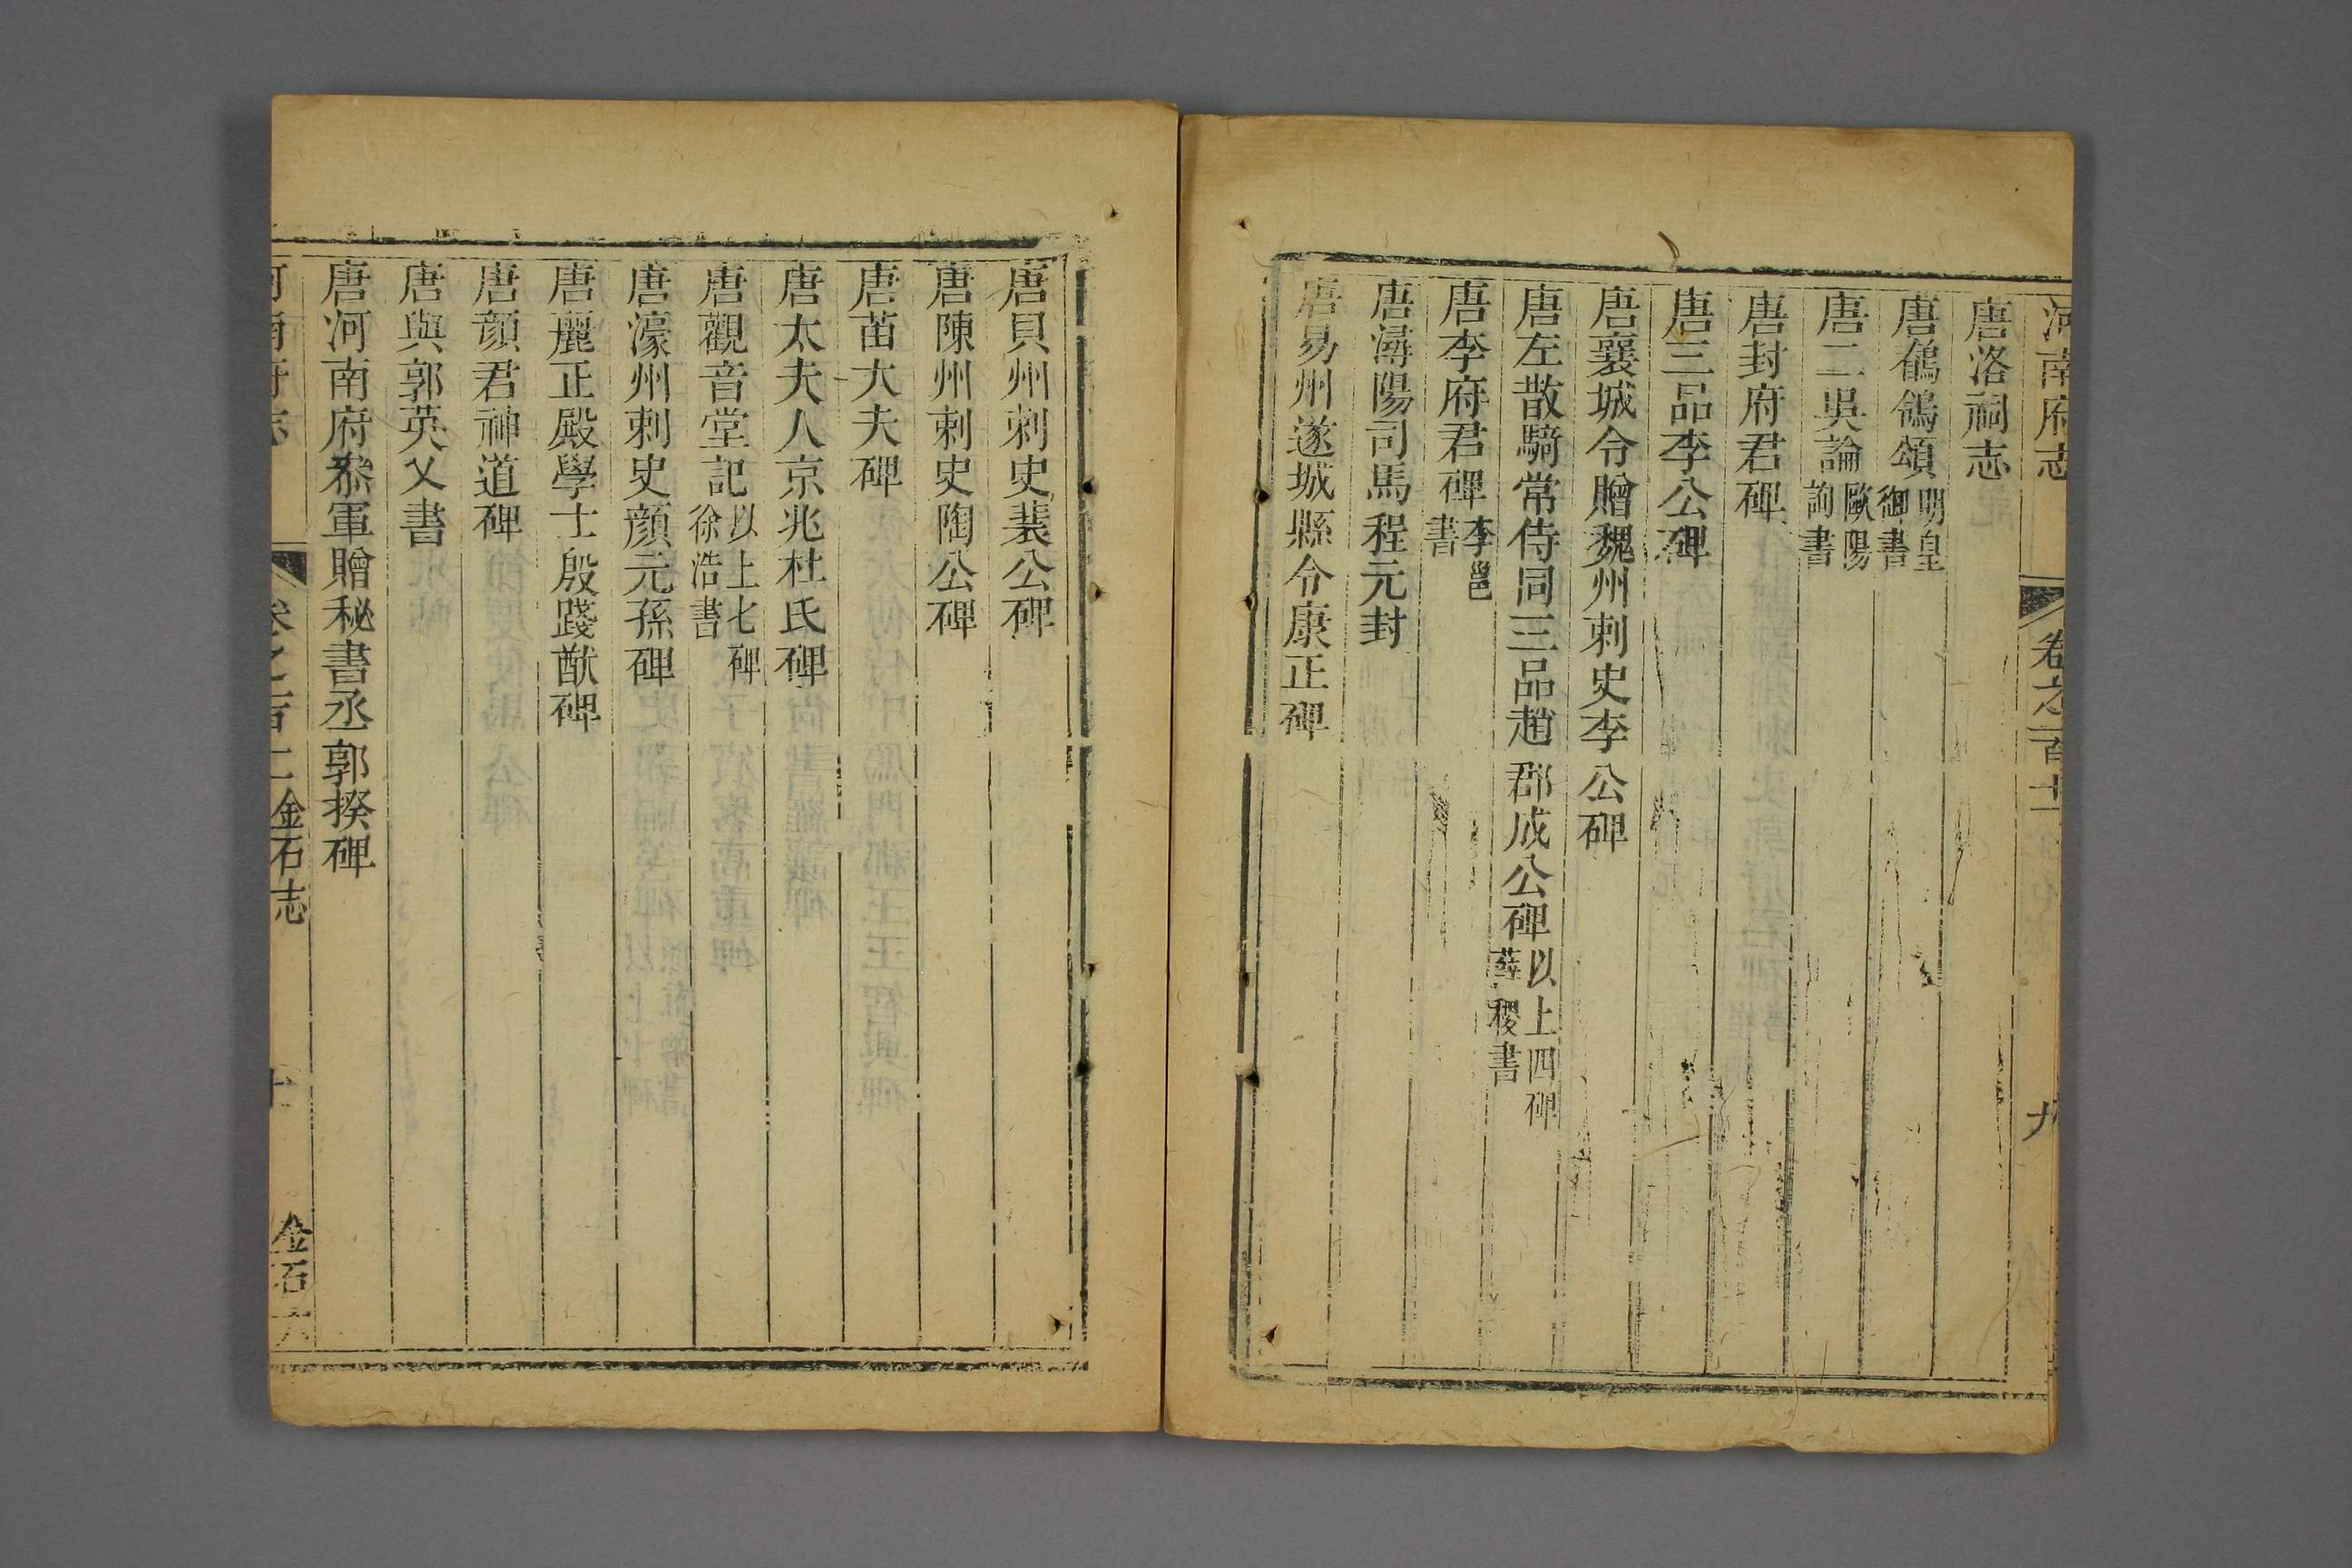 河南府志 卷之百十二 九
唐洛祠志
唐鶺鴒頌 明皇御書
唐二吳論 歐陽詢書
唐封府君碑
唐三品李公碑
唐襄城令贈魏州刺史李公碑
唐左散騎常侍同三品趙郡成公碑 以上四碑薛稷書
唐李府君碑 李邕書
唐潯陽司馬程元封
唐易州遂城縣令康正碑
唐貝州刺史裴公碑
唐陳州刺史陶公碑
唐苗大夫碑
唐太夫人京兆杜氏碑
唐觀音堂記 以上七碑徐浩書
唐濠州刺史顔元孫碑
唐麗正殿學士殷踐猷碑
唐顔君神道碑
唐與郭英乂書
唐河南府叅軍贈秘書丞郭揆碑
河南府志 卷之百十二 金石志 十 金石六